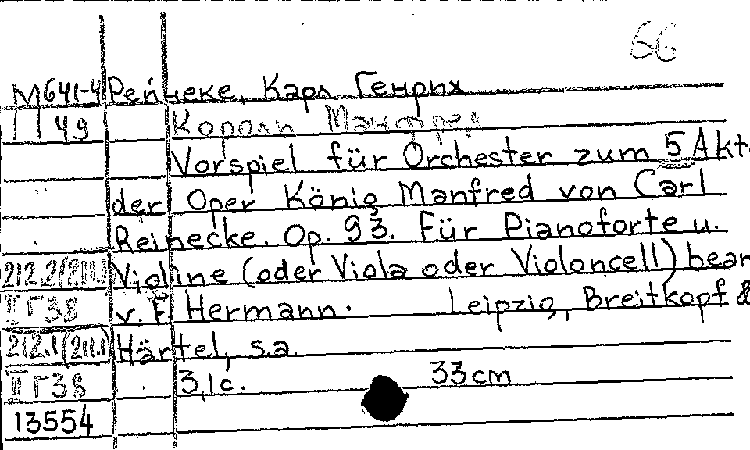 66
М641-4 Рейнеке, Карл Генрих
1149 Король Манфред
Vorspiel für Orchester zum 5 Akt
der Oper König Manfred von Carl
Reinecke. Op. 93. Für Pianoforte u.
212.2(211.1) Violine (oder Viola oder Violoncell) bear
II Г38 v. F. Hermann. Leipzig, Breitkopf &
212.1(211.1) Härtel, s.a.
II Г38 3,1c. 33cm
13554